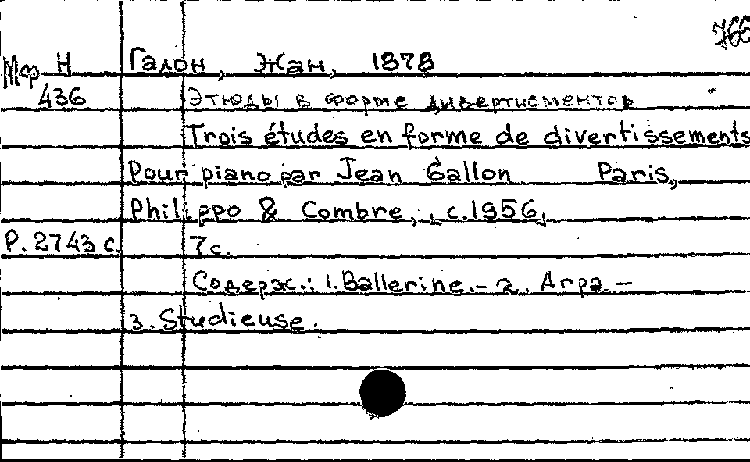 766
Мфр Н Галон, Жан, 1878
436 Этюды в форме дивертисментов
Trois études en forme de divertissements
Pour piano par Jean Gallon Paris,
Philippo & Combre, c.1956,
P. 2743 c. 7с.
Содерж.: 1. Ballerine. - 2. Arpa -
3. Studieuse.